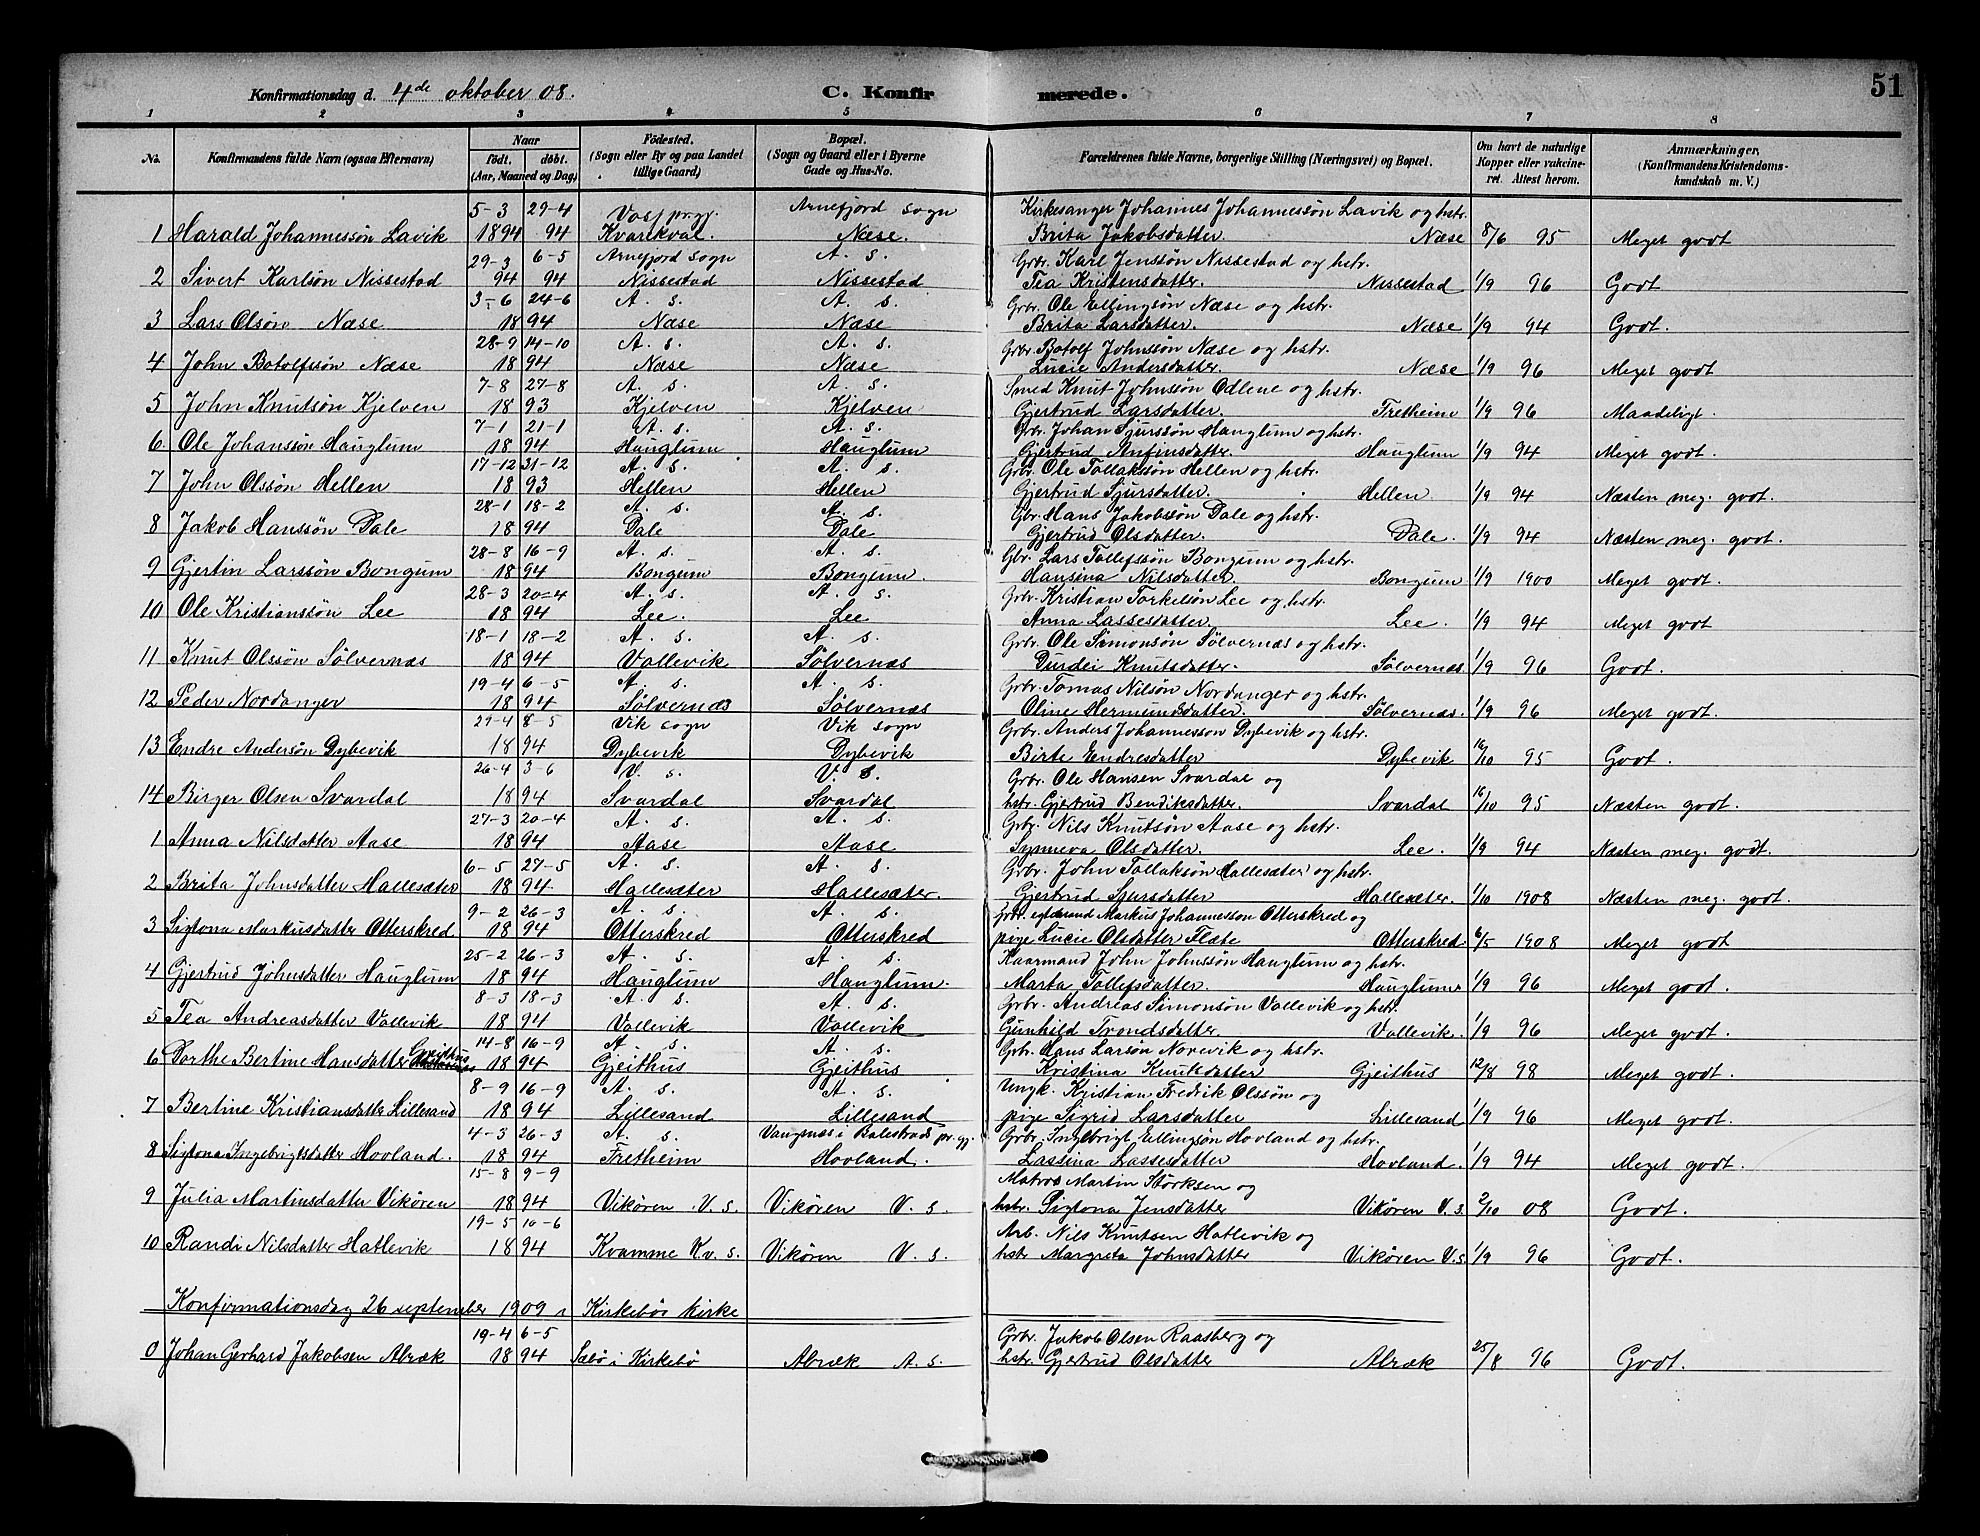 51
Konfirmationsdag d. 4de oktober 08. C. Konfir merede.
1 2 3 4 5 6 7 8
No. Konfirmandens fulde Navn (ogsaa Efternavn) Naar födt. döbt. (Aar, Maaned og Dag) Födested. (Sogn eller By og paa Landet tillige Gaard) Bopæl. (Sogn og Gaard eller i Byerne Gade og Hus-No. Forældrenes fulde Navne, borgerlige Stilling (Næringsvei) og Bopæl. Om havt de naturlige Kopper eller vakcineret. Attest herom. Anmærkninger, (Konfirmandens Kristendomskundskab m. V.)
5-3 29-4 Voss pr.gj. Arnefjord sogn Kirkesanger Johannes Johannessön Lavik og hstr.
1 Harald Johannessön Lavik 1894 94 Kvarekval. Næse. Brita Jakobsdatter. Næse 8/6 95 Meget godt
29-3 6-5 Arnefjord sogn A. s. Grbr. Karl Jenssön Nissestad og hstr.
2 Sivert Karlsön Nissestad 94 94 Nissestad Nissestad Tea Kristensdatter. Nissestad 1/9 96 Godt
3-6 24-6 A. s. A. s. Grbr. Ole Ellingsön Næse og hstr.
3 Lars Olsön Næse 1894 Næse Næse Brita Larsdatter. Næse 1/9 94 Godt.
28-9 14-10 A. s. A. s. Grbr. Botolf Johnssön Næse og hstr.
4 John Botolfssön Næse 1894 Næse Næse Lucie Andersdatter. Næse 1/9 96 Meget godt
7-8 27-8 A. s. A. s. Smed Knut Johnssön Odlene og hstr.
5 John Knutsön Kjelven 1893 Kjelven Kjelven Gjertrud Larsdatter. Fretheim 1/9 96 Maadeligt.
7-1 21-1 A. s. A. s. Grbr. Johan Sjurssön Hauglum og hstr.
6. Ole Johanssön Hauglum 1894 Hauglum Hauglum Gjertrud Anfinsdatter. Hauglum 1/9 94 Meget godt.
17-12 31-12 A. s. A. s. Grbr. Ole Tollakssön Hellen og hstr.
7 John Olssön Hellen 1893 Hellen Hellen Gjertrud Sjursdatter. Hellen. 1/9 94 Næsten meg. godt.
28-1 18-2 A. s. A. s. Gbr. Hans Jakobssön Dale og hstr.
8 Jakob Hanssön Dale 1894 Dale Dale Gjertrud Olsdatter. Dale. 1/9 94 Næsten meg. godt.
28-8 16-9 A. s. A. s. Gbr. Lars Tollefssön Bongum og hstr.
9 Gjertin Larssön Bongum 1894 Bongum Bongum. Hansina Nilsdatter. Bongum 1/9 1900 Meget godt.
28-3 20-4 A. s. A. s. Grbr. Kristian Torkelsön Lee og hstr.
10 Ole Kristianssön Lee 1894 Lee. Lee Anna Lassesdatter. Lee. 1/9 94 Meget godt
18-1 18-2 A. s. A. s. Grbr. Ole Simonsön Sölvernæs og hstr.
11 Knut Olssön Sölvernæs 1894 Vallevik Sölvernæs Durdei Knutsdatter. Sölvernæs. 1/9 96 Godt.
19-4 6-5 A. s. A. s. Grbr. Tomas Nilsön Nordanger og hstr.
12 Peder Nordanger 1894 Sölvernæs Sölvernæs Oline Hermundsdatter. Sölvernæs. 1/9 96 Meget godt.
29-4 8-5 Vik sogn Vik sogn Grbr. Anders Johannesson Dybevik og hstr.
13 Endre Andersön Dybevik 1894 Dybevik Dybevik Birte Endresdatter Dybevik 16/10 95 Godt.
26-4 3-6 V. s. V. s. Grbr. Ole Hansen Svardal og
14 Birger Olsen Svardal 1894 Svardal Svardal hstr. Gjertrud Bendiksdatter. Svardal 16/10 95 Næsten godt.
27-3 20-4 A. s. A. s. Grbr. Nils Knutsön Aase og hstr.
1 Anna Nilsdatter Aase 1894 Aase Aase Synneva Olsdatter. Lee. 1/9 94 Næsten meg. godt.
6-5 27-5 A. s. A. s. Grbr. John Tollaksön Hallesæter og hstr.
2 Brita Johnsdatter Hallesæter 1894 Hallesæter Hallesæter. Gjertrud Sjursdatter Hallesæter. 1/10 1908 Næsten meg. godt.
9-2 26-3 A. s. A. s. Markus Johannesson Otterskred og
3 Sigtona Markusdatter Otterskred 1894 Otterskred Otterskred pige Lucie Olsdatter Flæte Otterskred 6/5 1908 Meget godt
25-2 26-3 A. s. A. s. Kaarmand John Johnssön Hauglum og hstr.
4 Gjertrud Johnsdatter Hauglum 1894 Hauglum Hauglum. Marta Tollefsdatter. Hauglum 1/9 96 Meget godt.
8-3 18-3 A. s. A. s. Grbr. Andreas Simonsön Vallevik og hstr.
5 Tea Andreasdatter Vallevik 1894 Vallevik Vallevik Gunhild Trondsdatter. Vallevik. 1/9 96 Meget godt.
14-8 16-9 A. s. A. s. Grbr. Hans Larsön Norevik og hstr.
6 Dorthe Bertine Hansdatter Gjeithus 1894 Gjeithus Gjeithus Kristina Knutsdatter Gjeithus 12/8 98 Meget godt.
8-9 16-9 A. s. A. s. Ungk. Kristian Fredrik Olssön og
7 Bertine Kristiansdatter Lillesand 1894 Lillesand Lillesand pige Sigrid Larsdatter Lillesand 1/9 96 Meget godt.
4-3 26-3 A. s. Vangsnæs i Balestrand pr. gj. Grbr. Ingebrigt Ellingsön Hovland og hstr.
8 Sigtona Ingebrigtsdatter Hovland. 1894 Fretheim Hovland. Lassina Lassesdatter Hovland. 1/9 94 Meget godt.
15-8 9-9 Matros Martin Störksen og
9 Julia Martinsdatter Vikören 1894 Vikören V. s. Vikören V. s. hstr. Sigtona Jensdatter Vikören V. s. 2/10 08 Godt.
19-5 10-6 Arb. Nils Knutsen Hatlevik og
10 Randi Nilsdatter Hatlevik 1894 Kvamme Kv. s. Vikören V. s. hstr Margreta Johnsdatter Vikören V.s. 1/9 96 Godt.
Konfirmationsdag 26 september 1909 i Kirkebös kirke
19-4 6-5 Grbr. Jakob Olsen Raasberg og
0 Johan Gerhard Jakobsen Abræk 1894 Sæbö i Kirkebö Abræk A. s. hstr. Gjertrud Olsdatter Abræk 25/8 96 Godt.